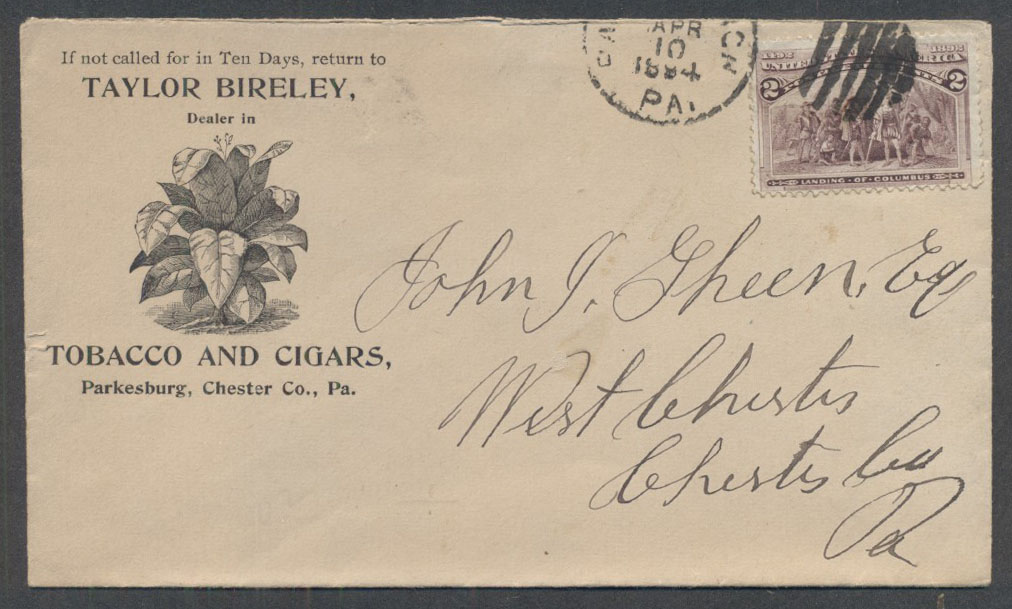 If not called for in Ten Days, return to
TAYLOR BIRELEY,
Dealer in
TOBACCO AND CIGARS,
Parkesburg, Chester Co., Pa.
APR
10
1894
PA.
1492 1892
UNITED STATES OF AMERICA
2 2
LANDING OF COLUMBUS
John J. Gheen, Esq
West Chester
Chester Co
Pa